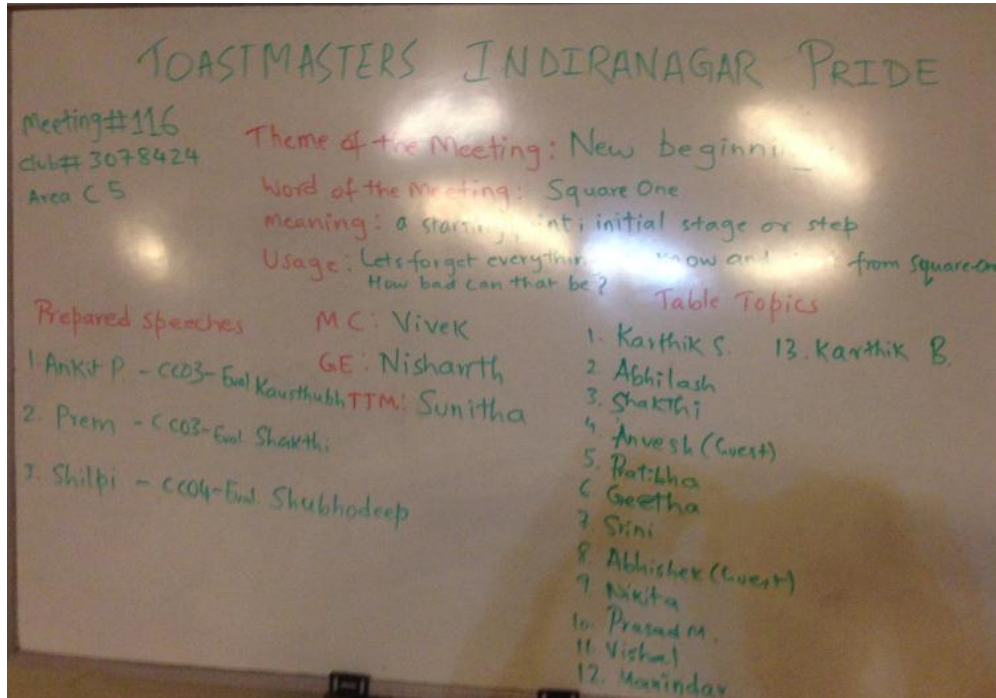 TOASTMASTERS INDIRANAGAR PRIDE
Meeting#116
club# 3078424
Area C5
Theme of the Meeting: New
Word of the Meeting: Square One
Meaning: a initial stage or step
Usage: Lets forget and from square-one
How bad can that be?
Prepared speeches
1. Ankit P. - CC03-Eval Kausthubh
2. Prem - CC03-Eval Shakthi
3. Shilpi - CC04-Eval. Shubhodeep
MC: Vivek
GE: Nishanth
TTM: Sunitha
Table Topics
1. Karthik S.
2. Abhilash
3. Shakthi
4. Anvesh (Guest)
5. Pratibha
6. Geetha
7. Srini
8. Abhishek (Guest)
9. Nikita
10. Prasad M.
11. Vishal
12. Manindar
13. Karthik B.